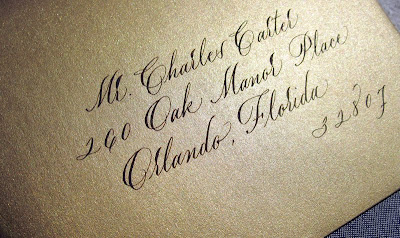 Mr. Charles Carter
240 Oak Manor Place
Orlando, Florida
32807